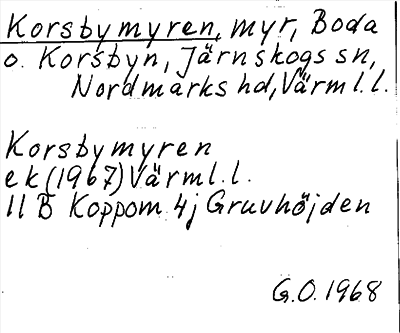 Korsbymyren, myr, Boda
o. Korsbyn, Järnskogs sn,
Nordmarks hd, Värml. l.
Korsbymyren
ek (1967) Värml. l.
11 B Koppom 4j Gruvhöjden
G.O. 1968